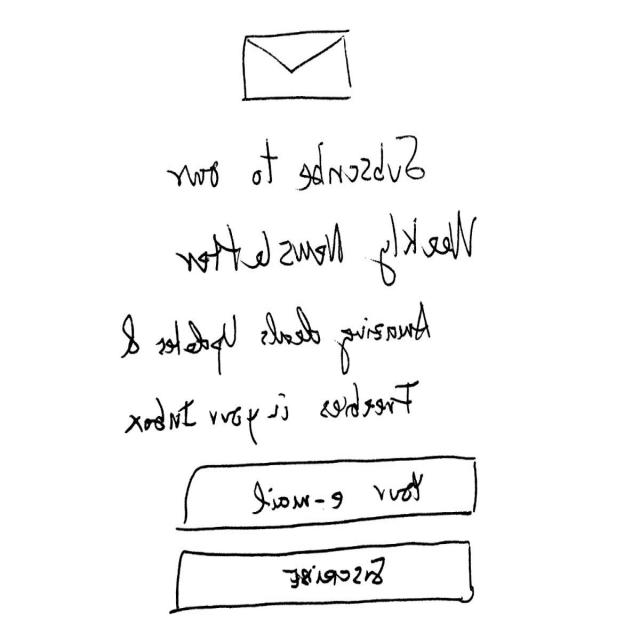 Subscribe to our
Weekly Newsletter
Amazing deals Updates &
Freebies ii your Inbox
Your e-mail